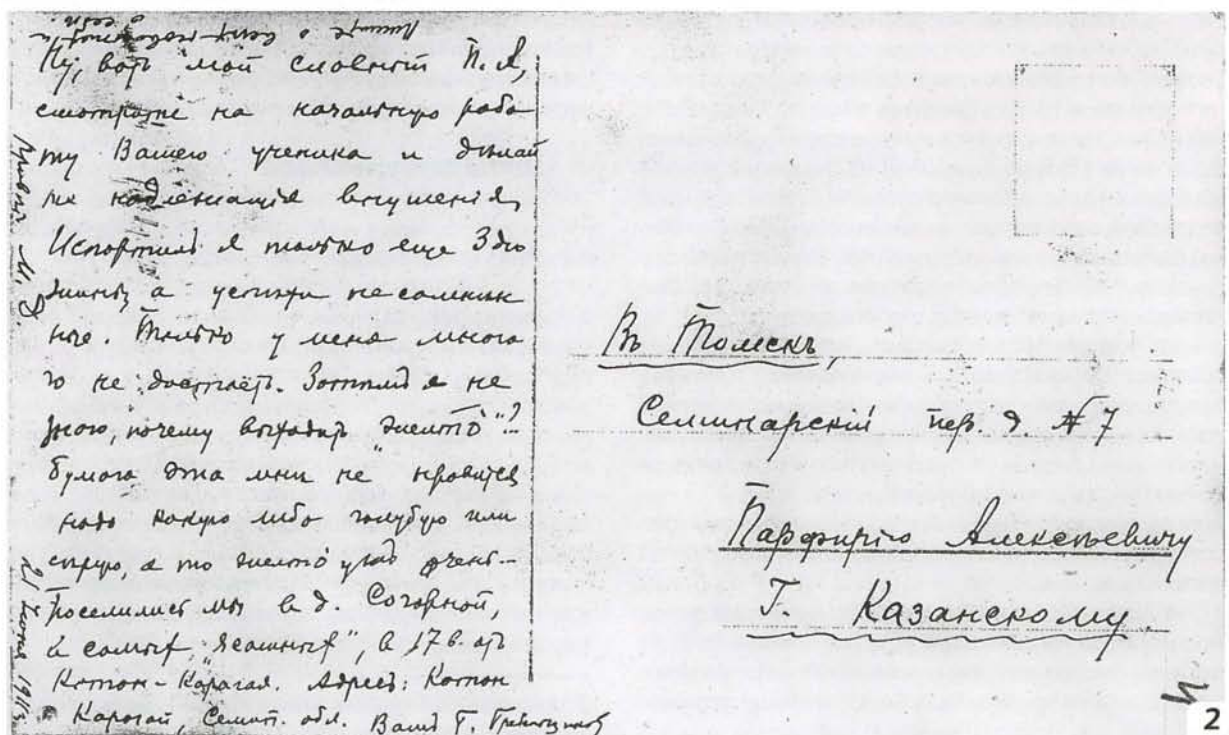 Ну, вотъ мой славный П. А
смотрите на начальную рабо
ту Вашего ученика и делай
те надлежащія внушенія,
Испортилъ я только еще 3 дю
жины, а успѣхи несомнѣн
ные. Только у меня много
го не достаетъ. Затѣмъ я не
знаю, почему выходитъ „желто“?
бумага эта мнѣ не нравится
надо какую либо голубую или
сѣрую, а то желто ужъ очень.
Поселились мы въ д. Согорной,
въ 17 в. отъ
Котон-Карагая. Адресъ: Котон
Карагай, Семип. обл. Вашъ Г. Гребенщиковъ
Пишите о
Привѣтъ М. Я
21 июня 1911 г.
Въ Томскъ,
Семинарскій пер. д № 7
Парфирію Алексѣевичу
Г. Казанскому.
2